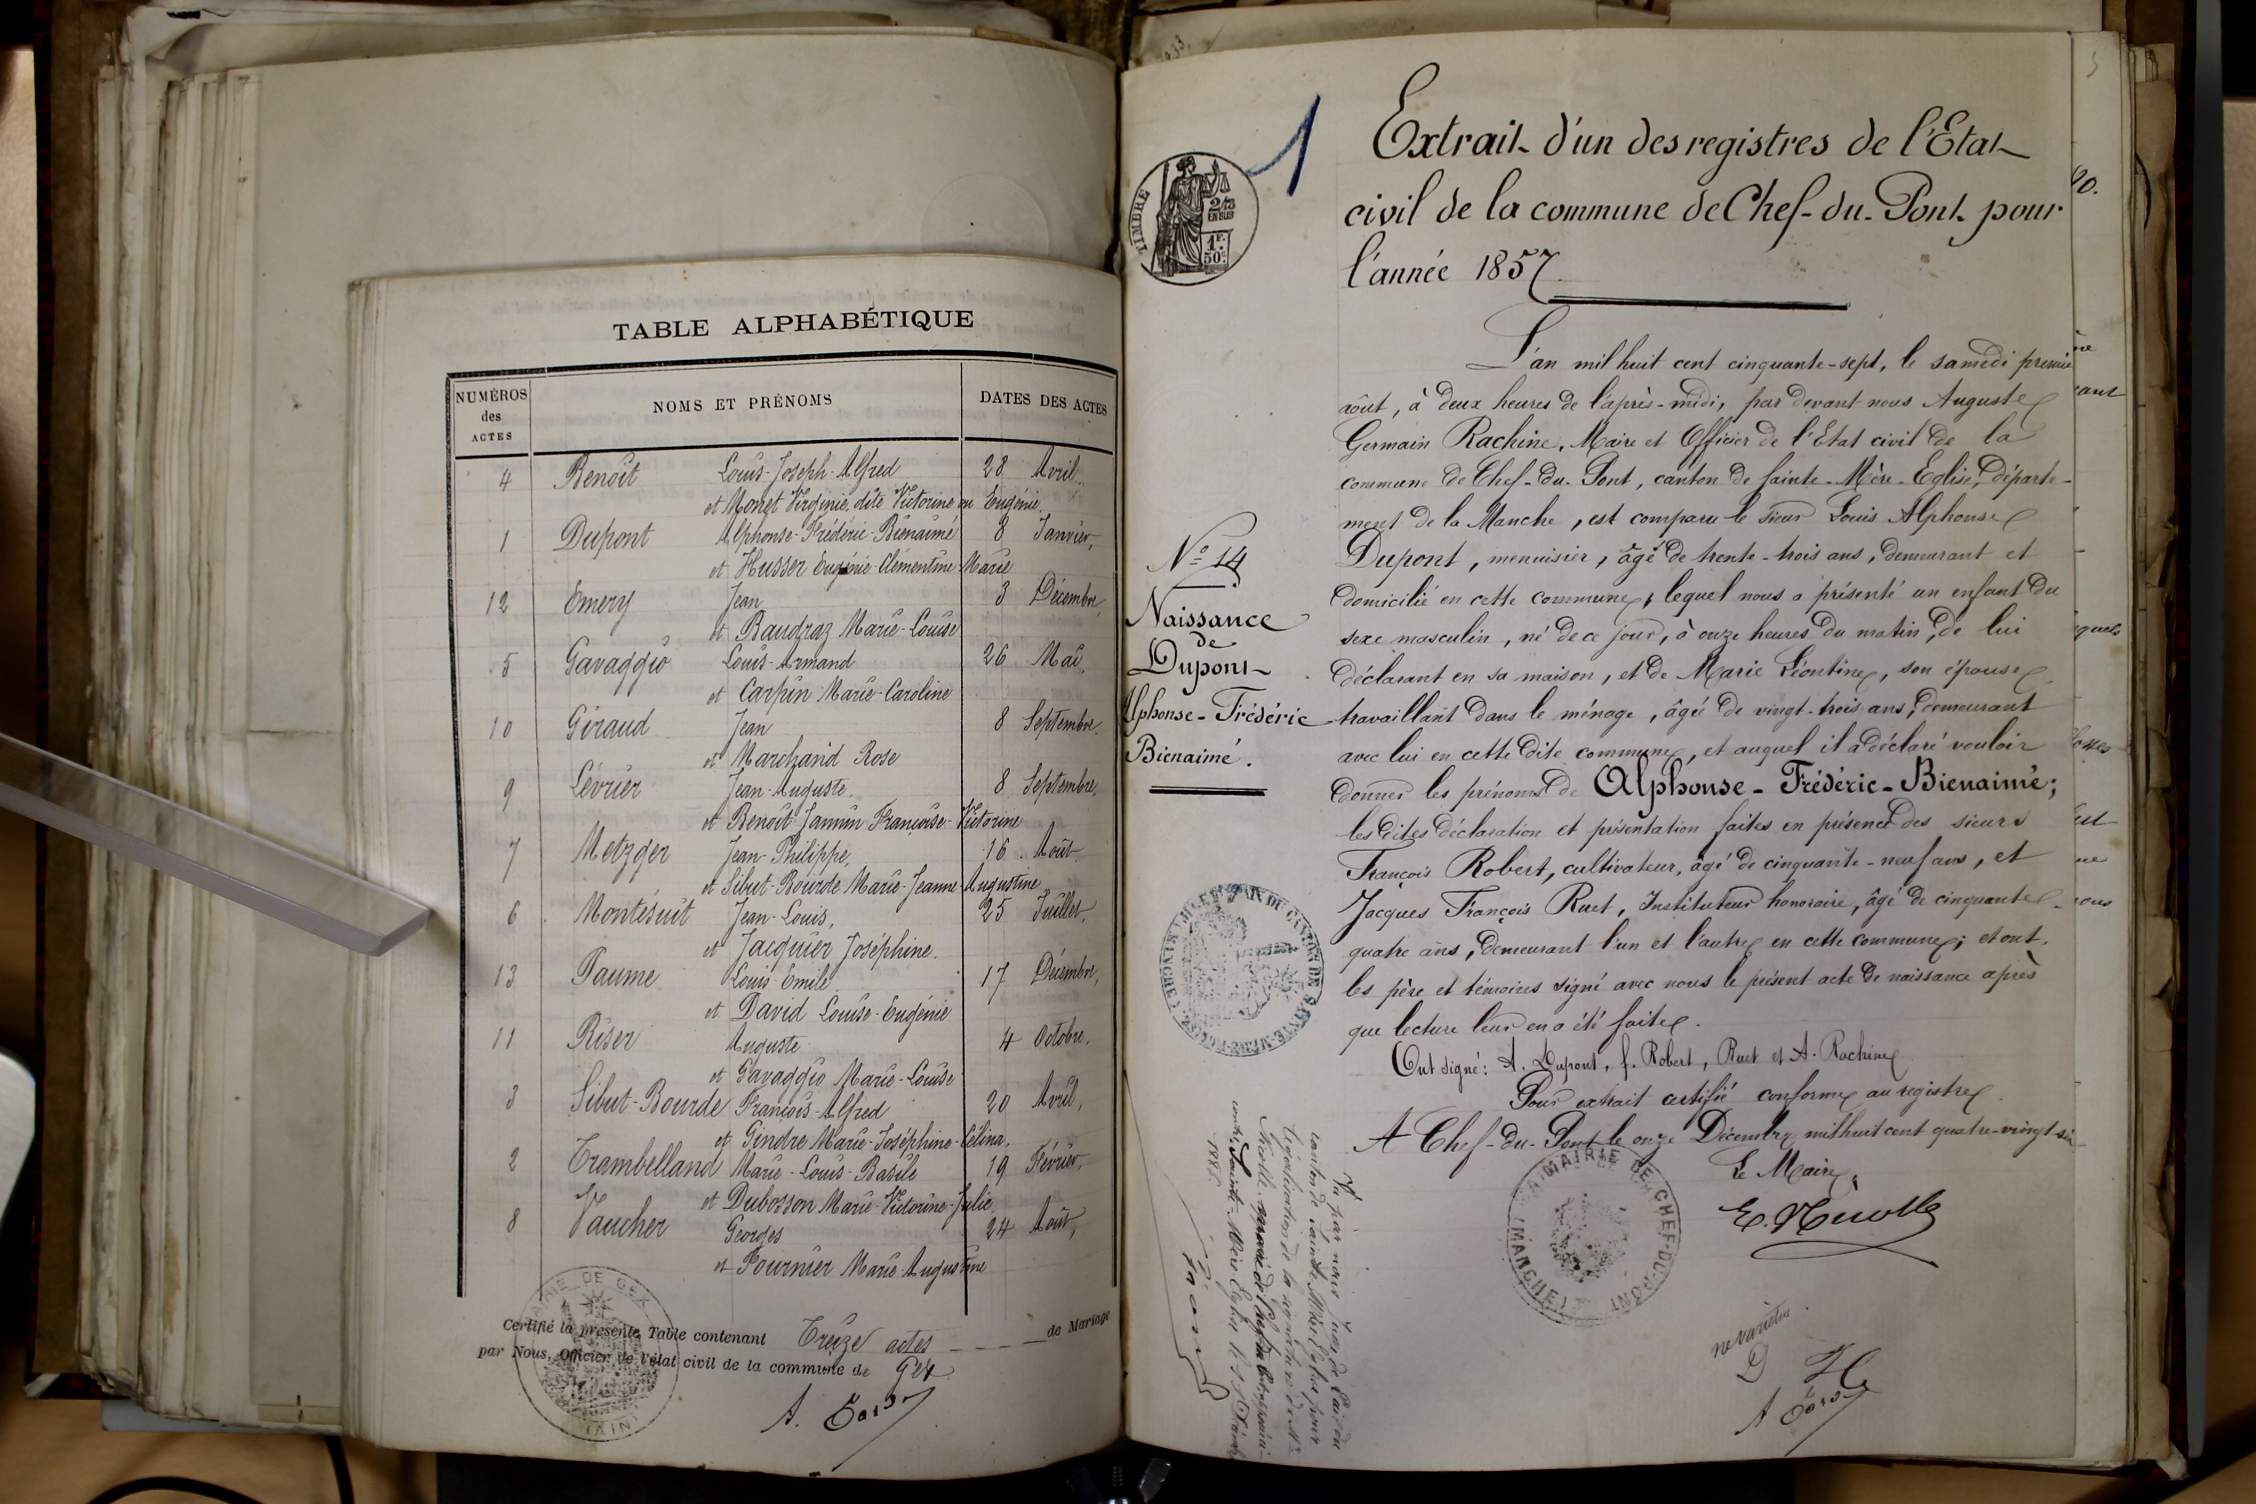 TABLE ALPHABÉTIQUE
NUMÉROS des ACTES
NOMS ET PRÉNOMS
DATES DES ACTES
4 Benoît Louis-Joseph-Alfred 28 Avril
et Monet Virginie dite Victorine ou Eugénie.
1 Dupont Alphonse-Frédéric-Bienaimé 8 Janvier,
et Husser Eugénie Clémentine Marie
12 Emery Jean 3 Décembre,
et Baudraz Marie-Louise
5 Gavaggio Louis-Armand 26 Mai,
et Carpin Marie-Caroline
10 Giraud Jean 8 Septembre,
et Marchand Rose
9 Lévrier Jean-Auguste. 8 Septembre,
et Benoît-Jannin Françoise-Victorine
7 Metzger Jean-Philippe, 16 Août
et Sibut-Bourde Marie-Jeanne-Augustine
6 Montésuit Jean-Louis, 25 Juillet,
et Jacquier Joséphine.
13 Paume Louis-Emile 17 Décembre,
et David Louise-Eugénie
11 Riser Auguste 4 Octobre.
et Gavaggio Marie-Louise
3 Sibut-Bourde François-Alfred 20 Avril,
et Gindre Marie-Joséphine-Célina,
2 Trambelland Marie-Louis-Basile 19 Février,
et Dubosson Marie-Victorine-Julie
8 Vaucher Georges 24 Août,
et Fournier Marie-Augustine
MAIRIE DE GEX
(AIN)
Certifié la présente Table contenant Treize actes de Mariage
par Nous, Officier de l'état civil de la commune de Gex
TIMBRE
2/10 EN SUS
1F. 50c.
1
Extrait d'un des registres de l'Etat
civil de la commune de Chef-du-Pont pour
l'année 1857
No 14
Naissance
de
Dupont
Alphonse-Frédéric
Bienaimé.
L'an mil huit cent cinquante-sept, le samedi premier
août, à deux heures de l'après-midi, par devant nous Auguste
Germain Rachine, Maire et Officier de l'Etat civil de la
commune de Chef-du-Pont, canton de Sainte-Mère-Eglise, départe-
ment de la Manche, est comparu le sieur Louis Alphonse
Dupont, menuisier, âgé de trente-trois ans, demeurant et
domicilié en cette commune, lequel nous a présenté un enfant du
sexe masculin, né de ce jour, à onze heures du matin, de lui
déclarant en sa maison, et de Marie Léontine, son épouse
travaillant dans le ménage, âgée de vingt-trois ans, demeurant
avec lui en cette dite commune, et auquel il a déclaré vouloir
donner les prénoms de Alphonse-Frédéric-Bienaimé;
les dites déclaration et présentation faites en présence des sieurs
François Robert, cultivateur, âgé de cinquante-neuf ans, et
Jacques François Ruet, Instituteur honoraire, âgé de cinquante-
quatre ans, demeurant l'un et l'autre en cette commune; et ont,
les père et témoins signé avec nous le présent acte de naissance après
que lecture leur en a été faite.
Ont signé: A. Dupont, f. Robert, Ruet et A. Rachine
Pour extrait certifié conforme au registre.
A Chef-du-Pont le onze Décembre mil huit cent quatre-vingt-six
Le Maire,
MAIRIE DE CHEF-DU-PONT
(MANCHE)
Vu par nous juge de Paix du
canton de Sainte Mère Eglise pour
légalisation de la signature de Mr
ne varietur